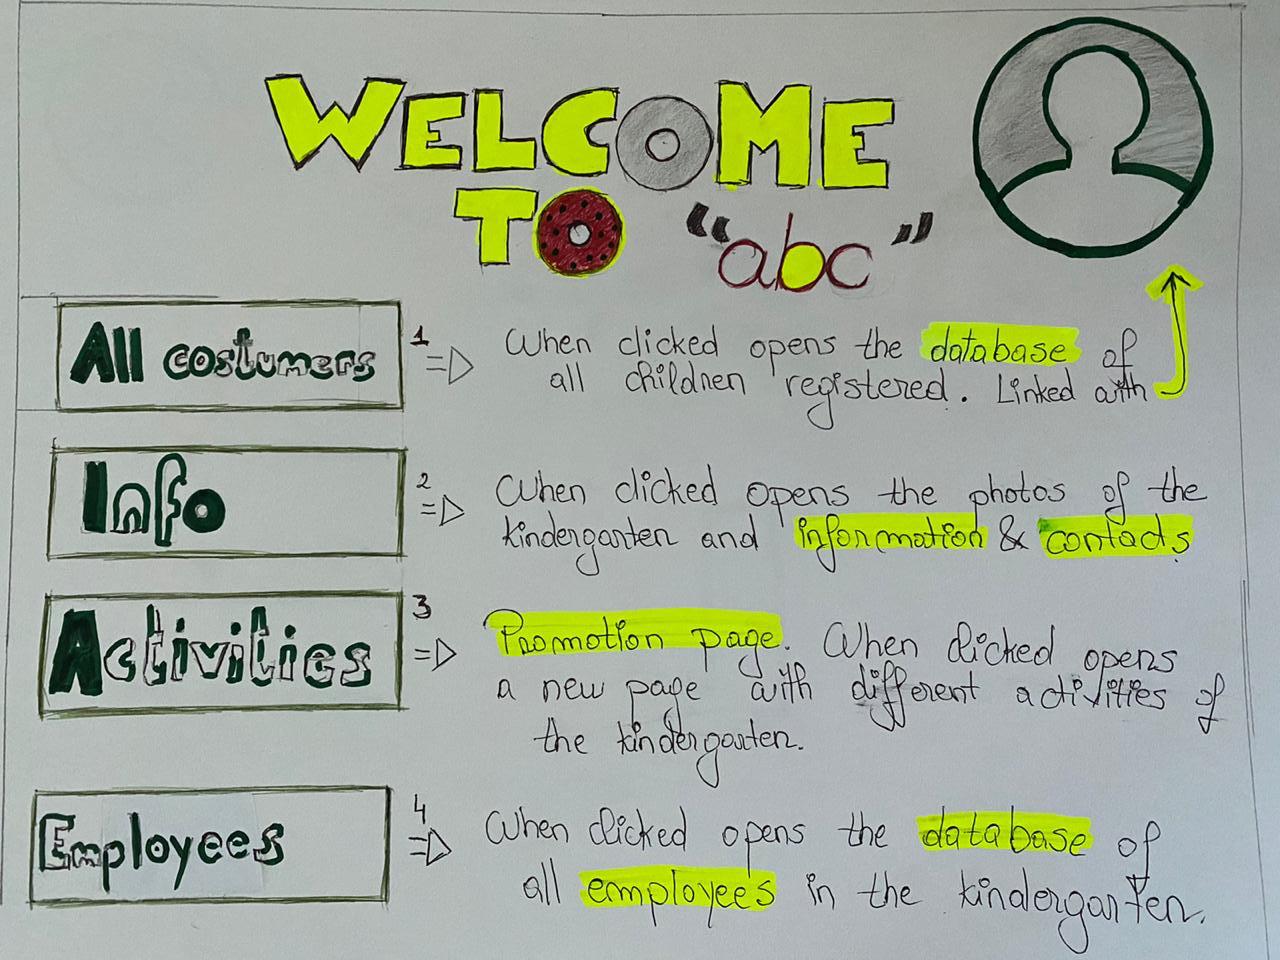 WELCOME
TO "abc"
All costumers
1 ⇒ When clicked opens the database of
all children registered. Linked with
Info
2 ⇒ When clicked opens the photos of the
kindergarten and information & contacts
Activities
3 ⇒ Promotion page. When clicked opens
a new page with different activities of
the kindergarten.
Employees
4 ⇒ When clicked opens the database of
all employees in the kindergarten.